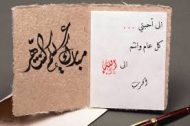 الى أحبتي ...
كل عام وانتم
الى الله
اقرب
مبارك عليكم الشهر